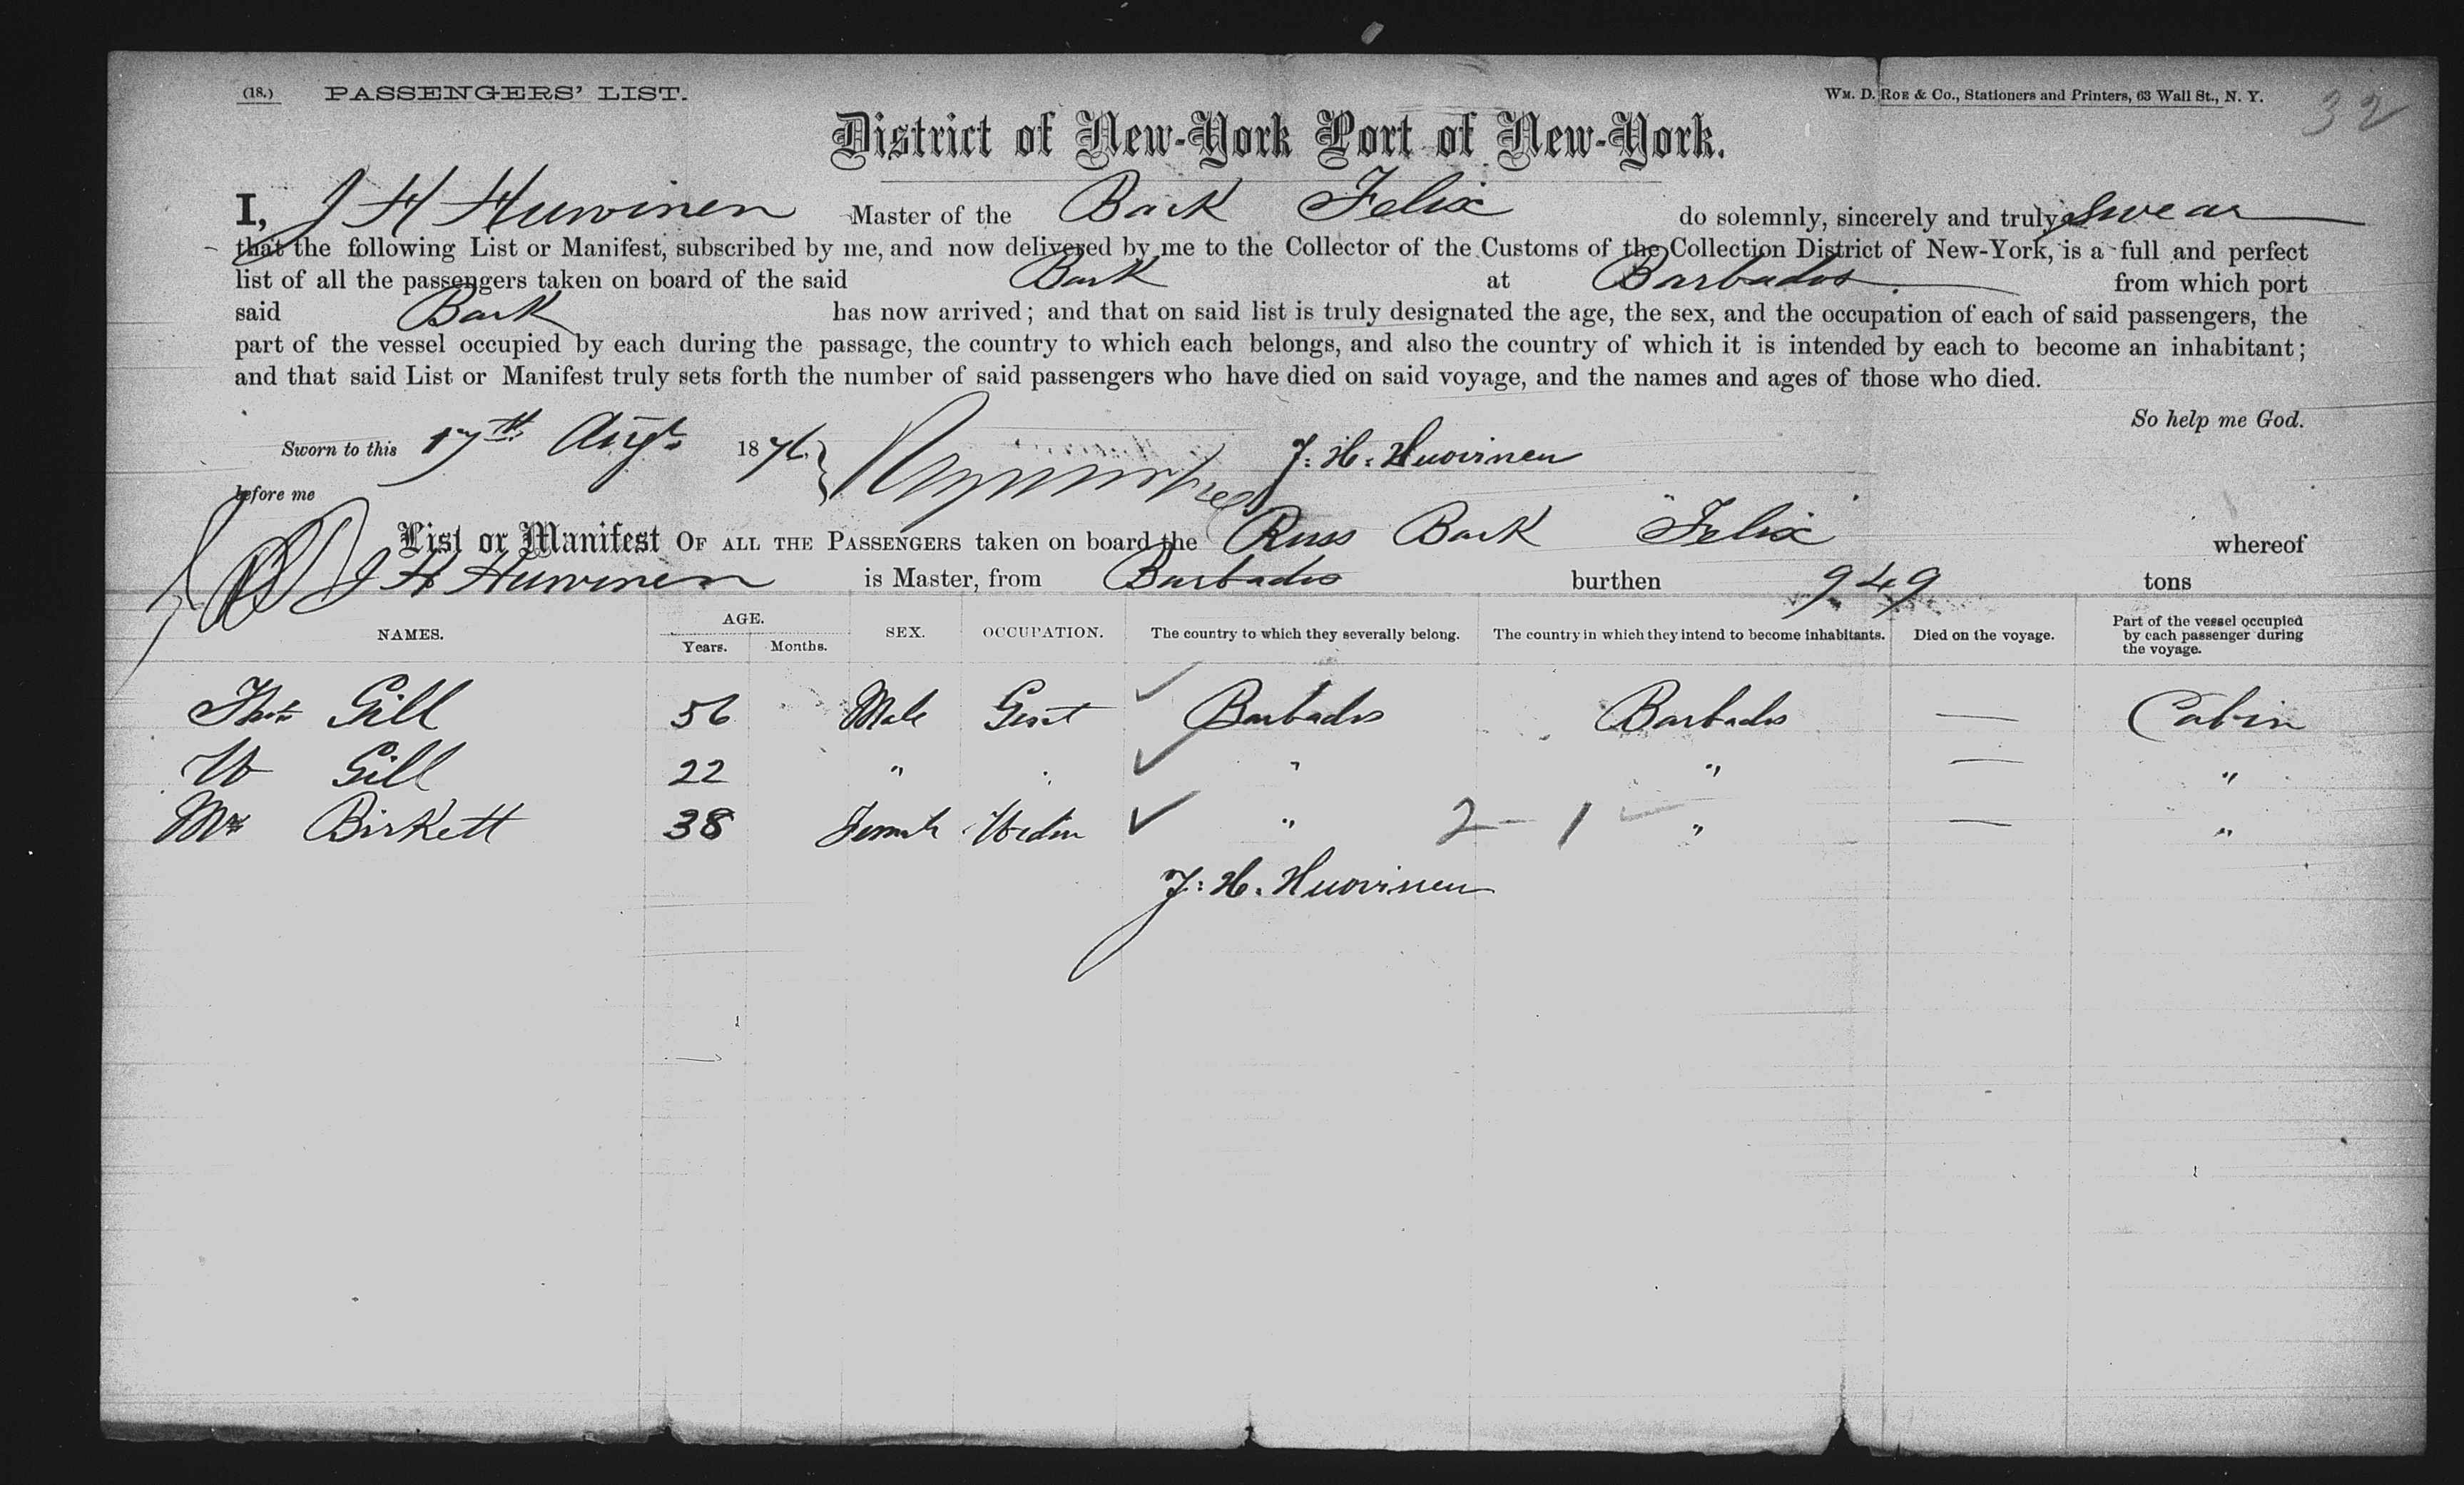 (18.) PASSENGERS' LIST. WM. D. ROE & Co., Stationers and Printers, 63 Wall St., N. Y. 32
District of New-York Port of New-York.
I, J H Huwinen Master of the Bark Felix do solemnly, sincerely and truly swear
that the following List or Manifest, subscribed by me, and now delivered by me to the Collector of the Customs of the Collection District of New-York, is a full and perfect
list of all the passengers taken on board of the said Bark at Barbados. from which port
said Bark has now arrived; and that on said list is truly designated the age, the sex, and the occupation of each of said passengers, the
part of the vessel occupied by each during the passage, the country to which each belongs, and also the country of which it is intended by each to become an inhabitant;
and that said List or Manifest truly sets forth the number of said passengers who have died on said voyage, and the names and ages of those who died.
So help me God.
Sworn to this 17th Augt 1876 J. H. Huovinen
before me
List or Manifest OF ALL THE PASSENGERS taken on board the Russ Bark "Felix" whereof
J H Huwinen is Master, from Barbados burthen 949 tons
NAMES. AGE. Years. Months. SEX. OCCUPATION. The country to which they severally belong. The country in which they intend to become inhabitants. Died on the voyage. Part of the vessel occupied by each passenger during the voyage.
Thos Gill 56 Male Gent ✓ Barbados Barbados — Cabin
W Gill 22 " " ✓ " " — "
Mrs Birkett 38 Female ✓ " 2 - 1 ✓ " — "
J. H. Huovinen